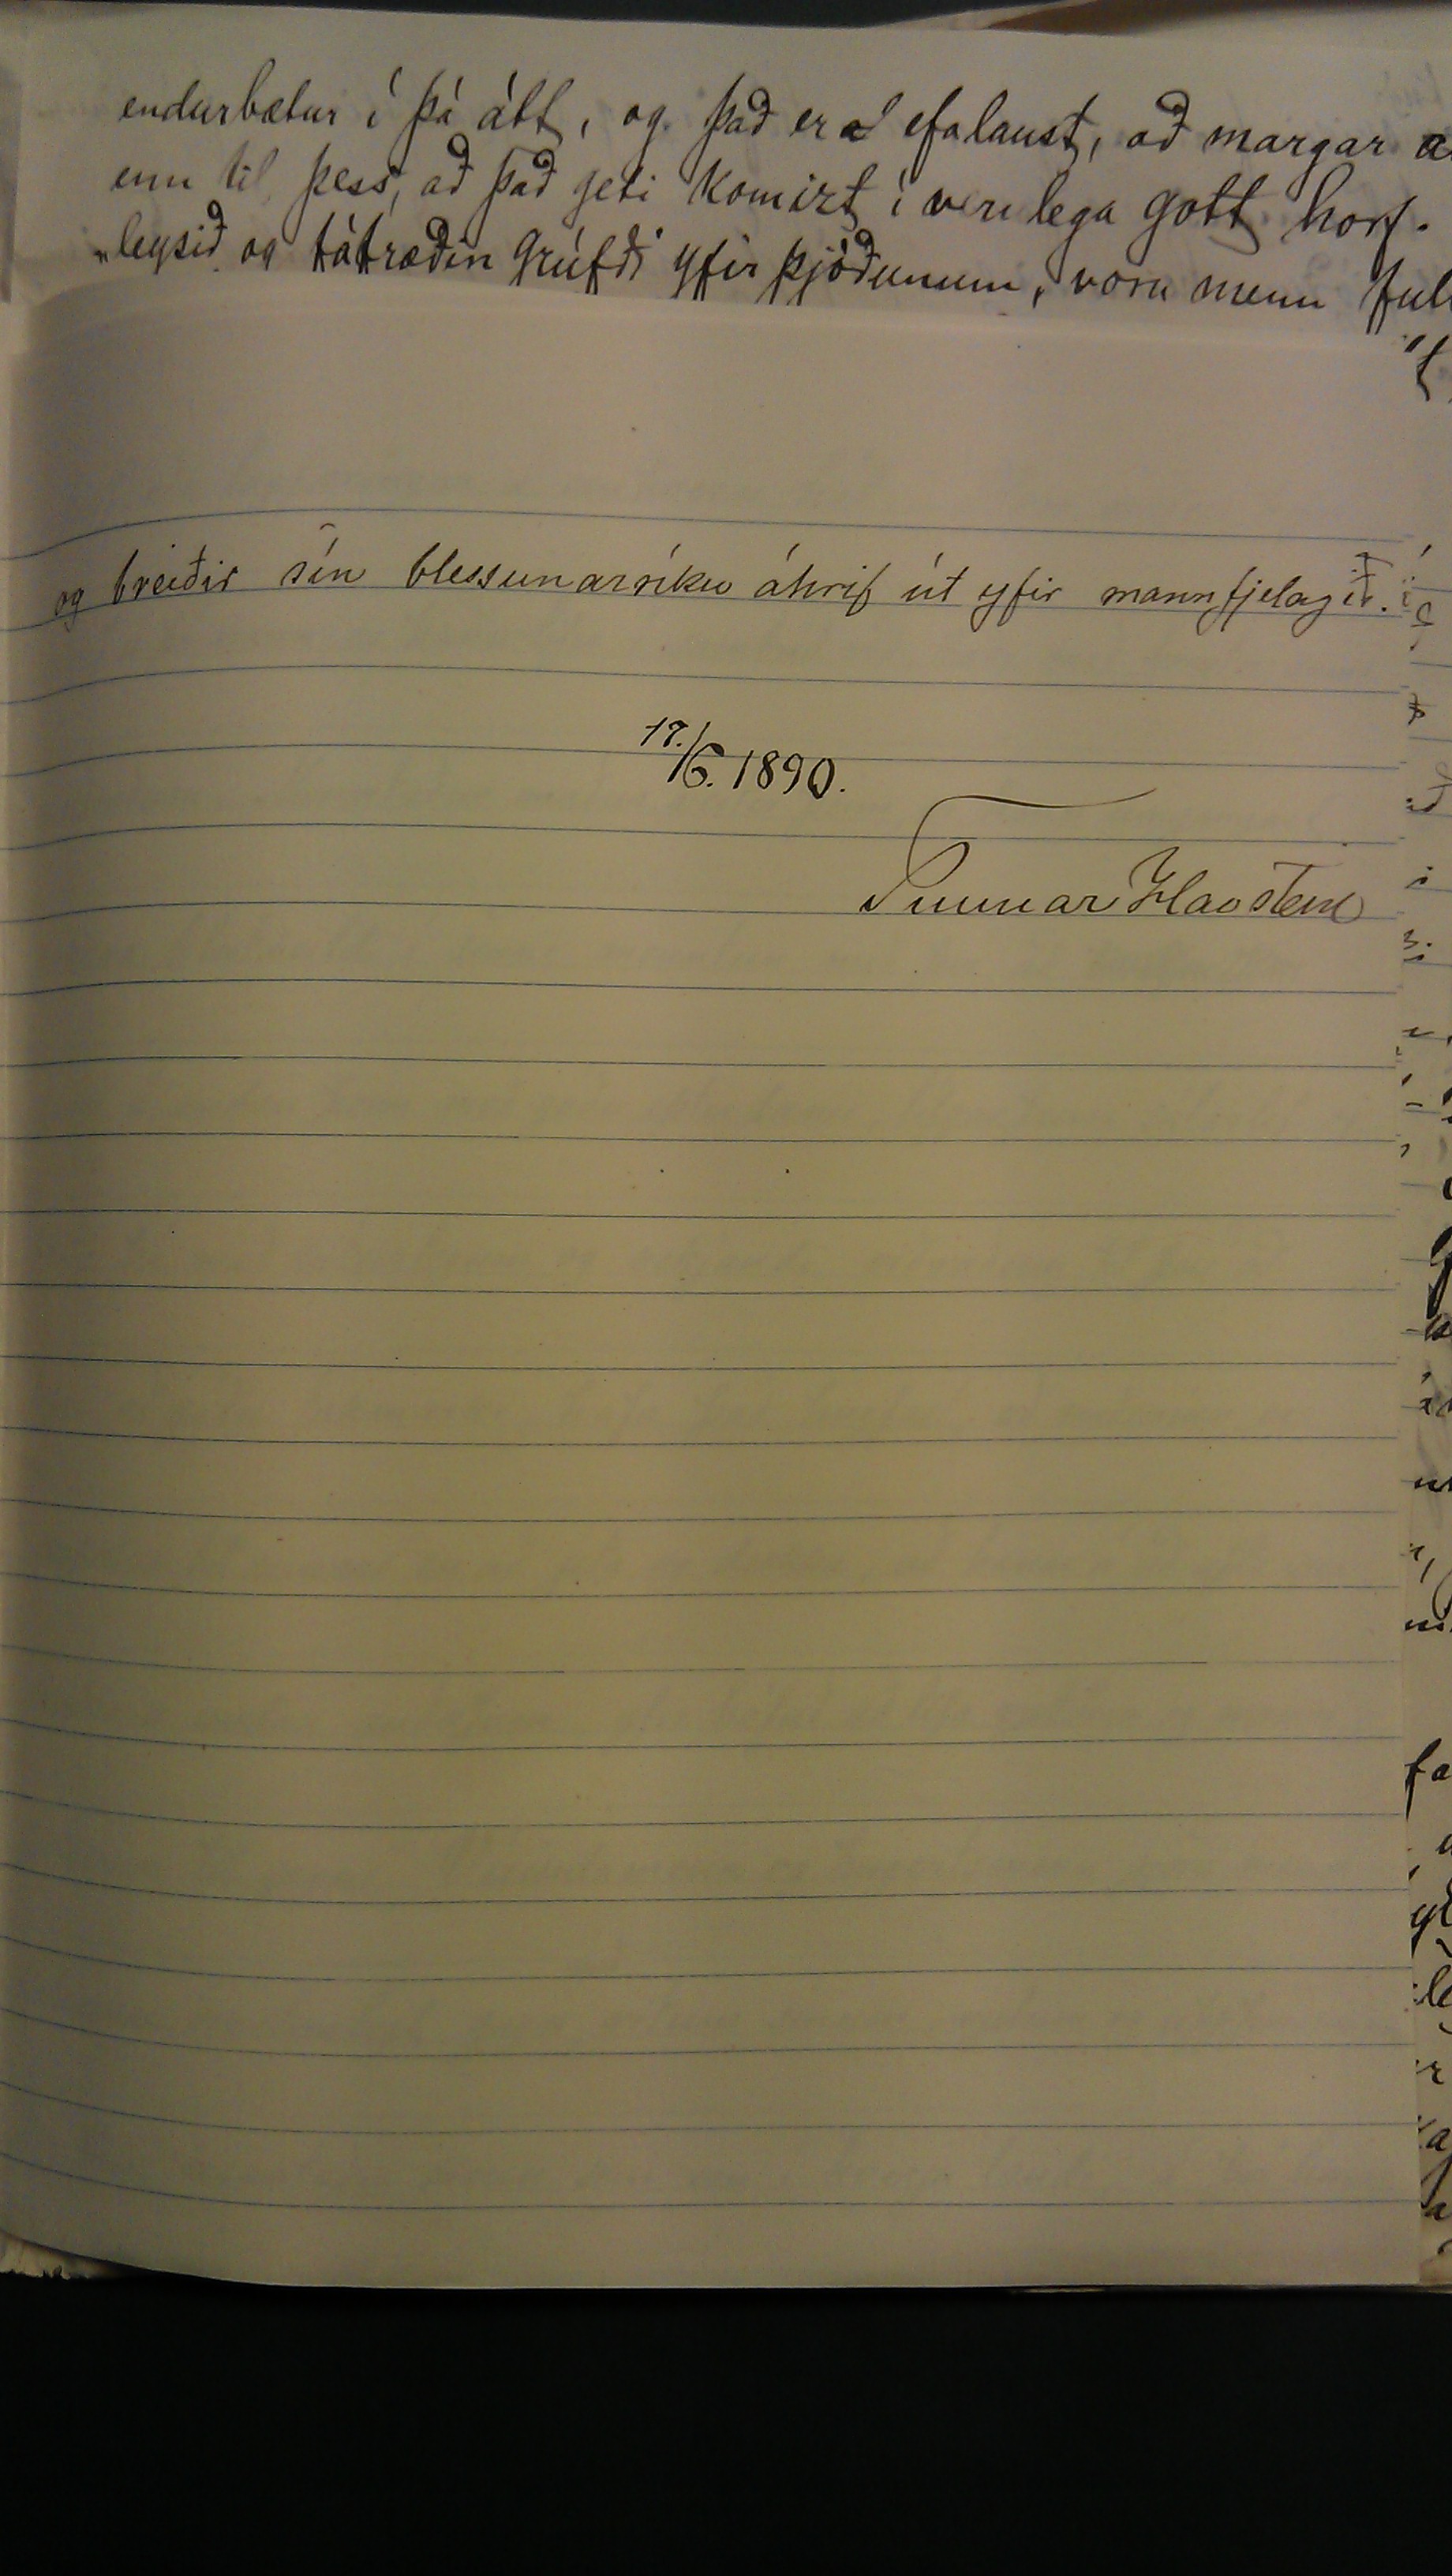 endurbætur í þá átt, og það er efalaust, að margar
enn til þess, að það geti komizt í verulega gott horf.
leysið og fátræðin grúfði yfir þjóðunum, voru menn
og breiðir sín blessunarríku áhrif út yfir mannfjelagið.
17./6. 1890.
Gunnar Hafstein